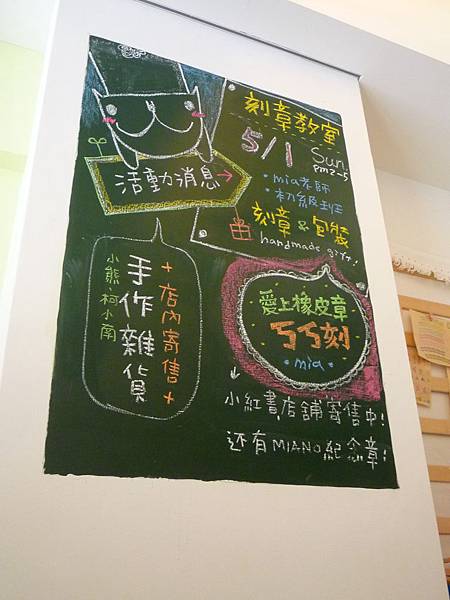 活動消息→
刻章教室
5/1 Sun.
pm2~5
・mia老師
・初級班
刻章 & 包裝
handmade gift!
+店內寄售+
手作雜貨
小熊、柯小南
愛上橡皮章
ㄎㄎ刻
・mia・
小紅書店舖寄售中!
还有MIANO紀念章!